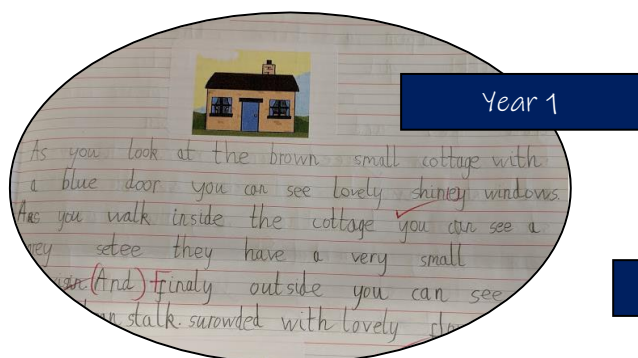 Year 1
As you look at the brown small cottage with
a blue door you can see lovely shiniey windows.
As you walk inside the cottage you can see a
setee they have a very small
(And) Finaly outside you can see
stalk. surowded with lovely